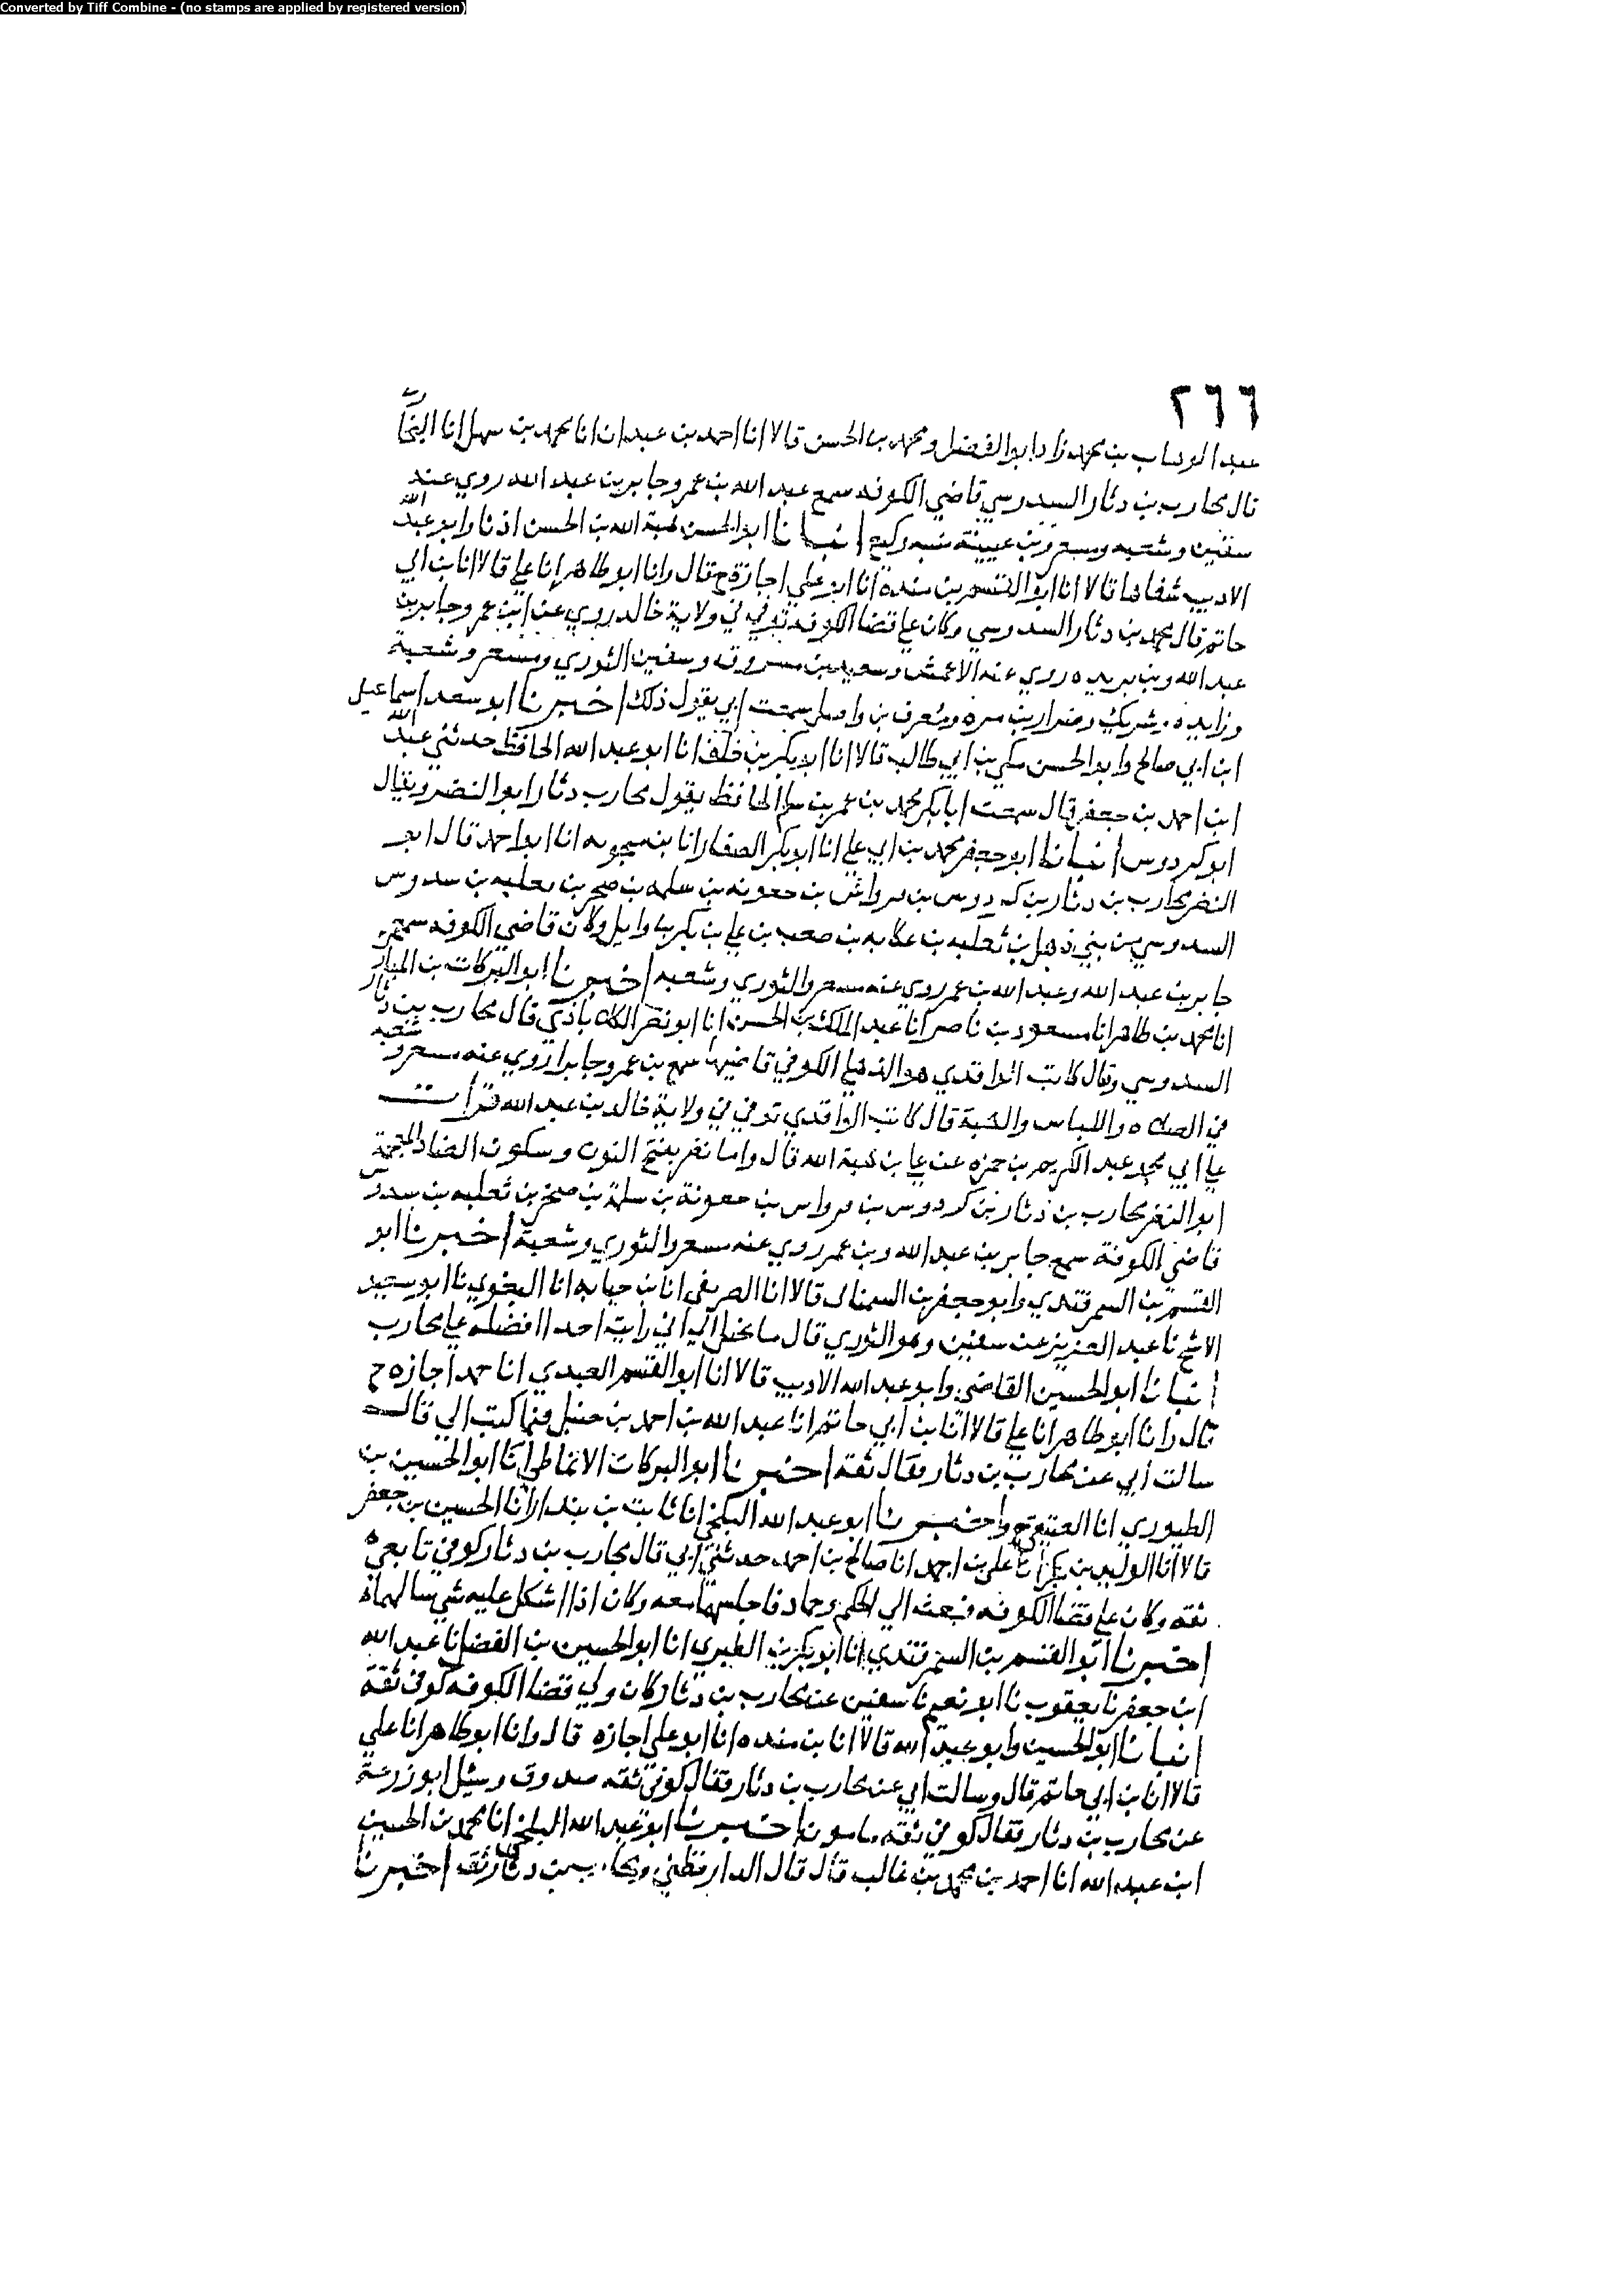 Converted by Tiff Combine - (no stamps are applied by registered version)
٢٦٦
عبد الوهاب بن محمد زاد ابو الفضل ومحمد بن الحسن قالا انا احمد بن عبدان انا محمد بن سهل انا البخاري
قال محارب بن دثار السدوسي قاضي الكوفه سمع عبد الله بن عمر وجابر بن عبد الله روي عنه
سفين وشعبه ومسعر وبن عيينة نسبه وكيع انبانا ابو الحسن هبة الله بن الحسن اذنا وابو عبد الله
الاديب شفاها قالا انا ابو القسم بن منده انا ابو علي اجازة ح قال وانا ابو طاهر انا علي قالا انا بن ابي
حاتم قال محمد بن دثار السدوسي وكان علي قضا الكوفه توفي في ولاية خالد روي عن ابن عمر وجابر بن
عبد الله وبن بريده روي عنه الاعمش وسعيد بن مسروق وسفين الثوري ومسعر وشعبة
وزايده وشريك وضرار بن مره ومعرف بن واصل سمعت ابي يقول ذلك اخبرنا ابو سعد اسماعيل
ابن ابي صالح وابو الحسن مكي بن ابي طالب قالا انا ابو بكر بن خلف انا ابو عبد الله الحافظ حدثني عبد الله
ابن احمد بن جعفر قال سمعت ابا بكر محمد بن عمر بن سلم الحافظ يقول محارب دثار ابو النضر ويقال
ابو كردوس انبانا ابو جعفر محمد بن ابي علي انا ابو بكر الصفار انا بن منجويه انا ابو احمد قال ابو
النضر محارب بن دثار بن كردوس بن قرواش بن جعونه بن سلمه بن صخر بن ثعلبه بن سدوس
السدوسي من بني ذهل بن ثعلبه بن عكابه بن صعب بن علي بن بكر بن وايل وكان قاضي الكوفه سمع
جابر بن عبد الله وعبد الله بن عمر روي عنه مسعر والثوري وشعبه اخبرنا ابو البركات بن المبارك
انا محمد بن طاهر انا مسعود بن ناصر انا عبد الملك بن الحسن انا ابو نصر الكلاباذي قال محارب بن دثار
السدوسي وقال كاتب الواقدي هو الذهلي الكوفي قاضيها سمع بن عمر وجابرا روي عنه مسعر وشعبه
في الصلاه واللباس والهبة قال كاتب الواقدي توفي في ولاية خالد بن عبد الله قرات
علي ابي محمد عبد الكريم بن حمزه عن علي بن هبة الله قال واما نضر بفتح النون وسكون الضاد المعجمة
ابو النضر محارب بن دثار بن كردوس بن قرواس بن جعونة بن سلمة بن صخر بن ثعلبه بن سدوس
قاضي الكوفة سمع جابر بن عبد الله وبن عمر روي عنه مسعر والثوري وشعبة اخبرنا ابو
القسم بن السمرقندي وابو جعفر بن السمناني قالا انا الصريفيني انا بن حبابه انا البغوي نا ابو سعيد
الاشج نا عبد العزيز عن سفين وهو الثوري قال ما يخيل الي اني رايت احدا افضله علي محارب
انبانا ابو الحسين القاضي وابو عبد الله الاديب قالا انا ابو القسم العبدي انا حمد اجازه ح
قال وانا ابو طاهر انا علي قالا انا بن ابي حاتم انا عبد الله بن احمد بن حنبل فيما كتب الي قال
سالت ابي عن محارب بن دثار فقال ثقة اخبرنا ابو البركات الانماطي انا ابو الحسين بن
الطيوري انا العتيقي ح واخبرنا ابو عبد الله البلخي انا ثابت بن بندار انا الحسين بن جعفر
قالا انا الوليد بن بكر انا علي بن احمد انا صالح بن احمد حدثني ابي قال محارب بن دثار كوفي تابعي
ثقه وكان علي قضا الكوفه فبعث الي الحكم وحماد فاجلسهما معه وكان اذا اشكل عليه شي سالهماه
اخبرنا ابو القسم بن السمرقندي انا ابو بكر بن الطبري انا ابو الحسين بن الفضل انا عبد الله
ابن جعفر نا يعقوب نا ابو نعيم نا سفين عن محارب بن دثار وكان ولي قضا الكوفه كوفي ثقة
انبانا ابو الحسين وابو عبد الله قالا انا بن منده انا ابو علي اجازه قال وانا ابو طاهر انا علي
قالا انا بن ابي حاتم قال وسالت ابي عن محارب بن دثار فقال كوفي ثقه صدوق وسئل ابو زرعة
عن محارب بن دثار فقال كوفي ثقه مامون اخبرنا ابو عبد الله البلخي انا محمد بن الحسين
ابن عبد الله انا احمد بن محمد بن غالب قال قال الدارقطني ومحارب بن دثار ثقه اخبرنا